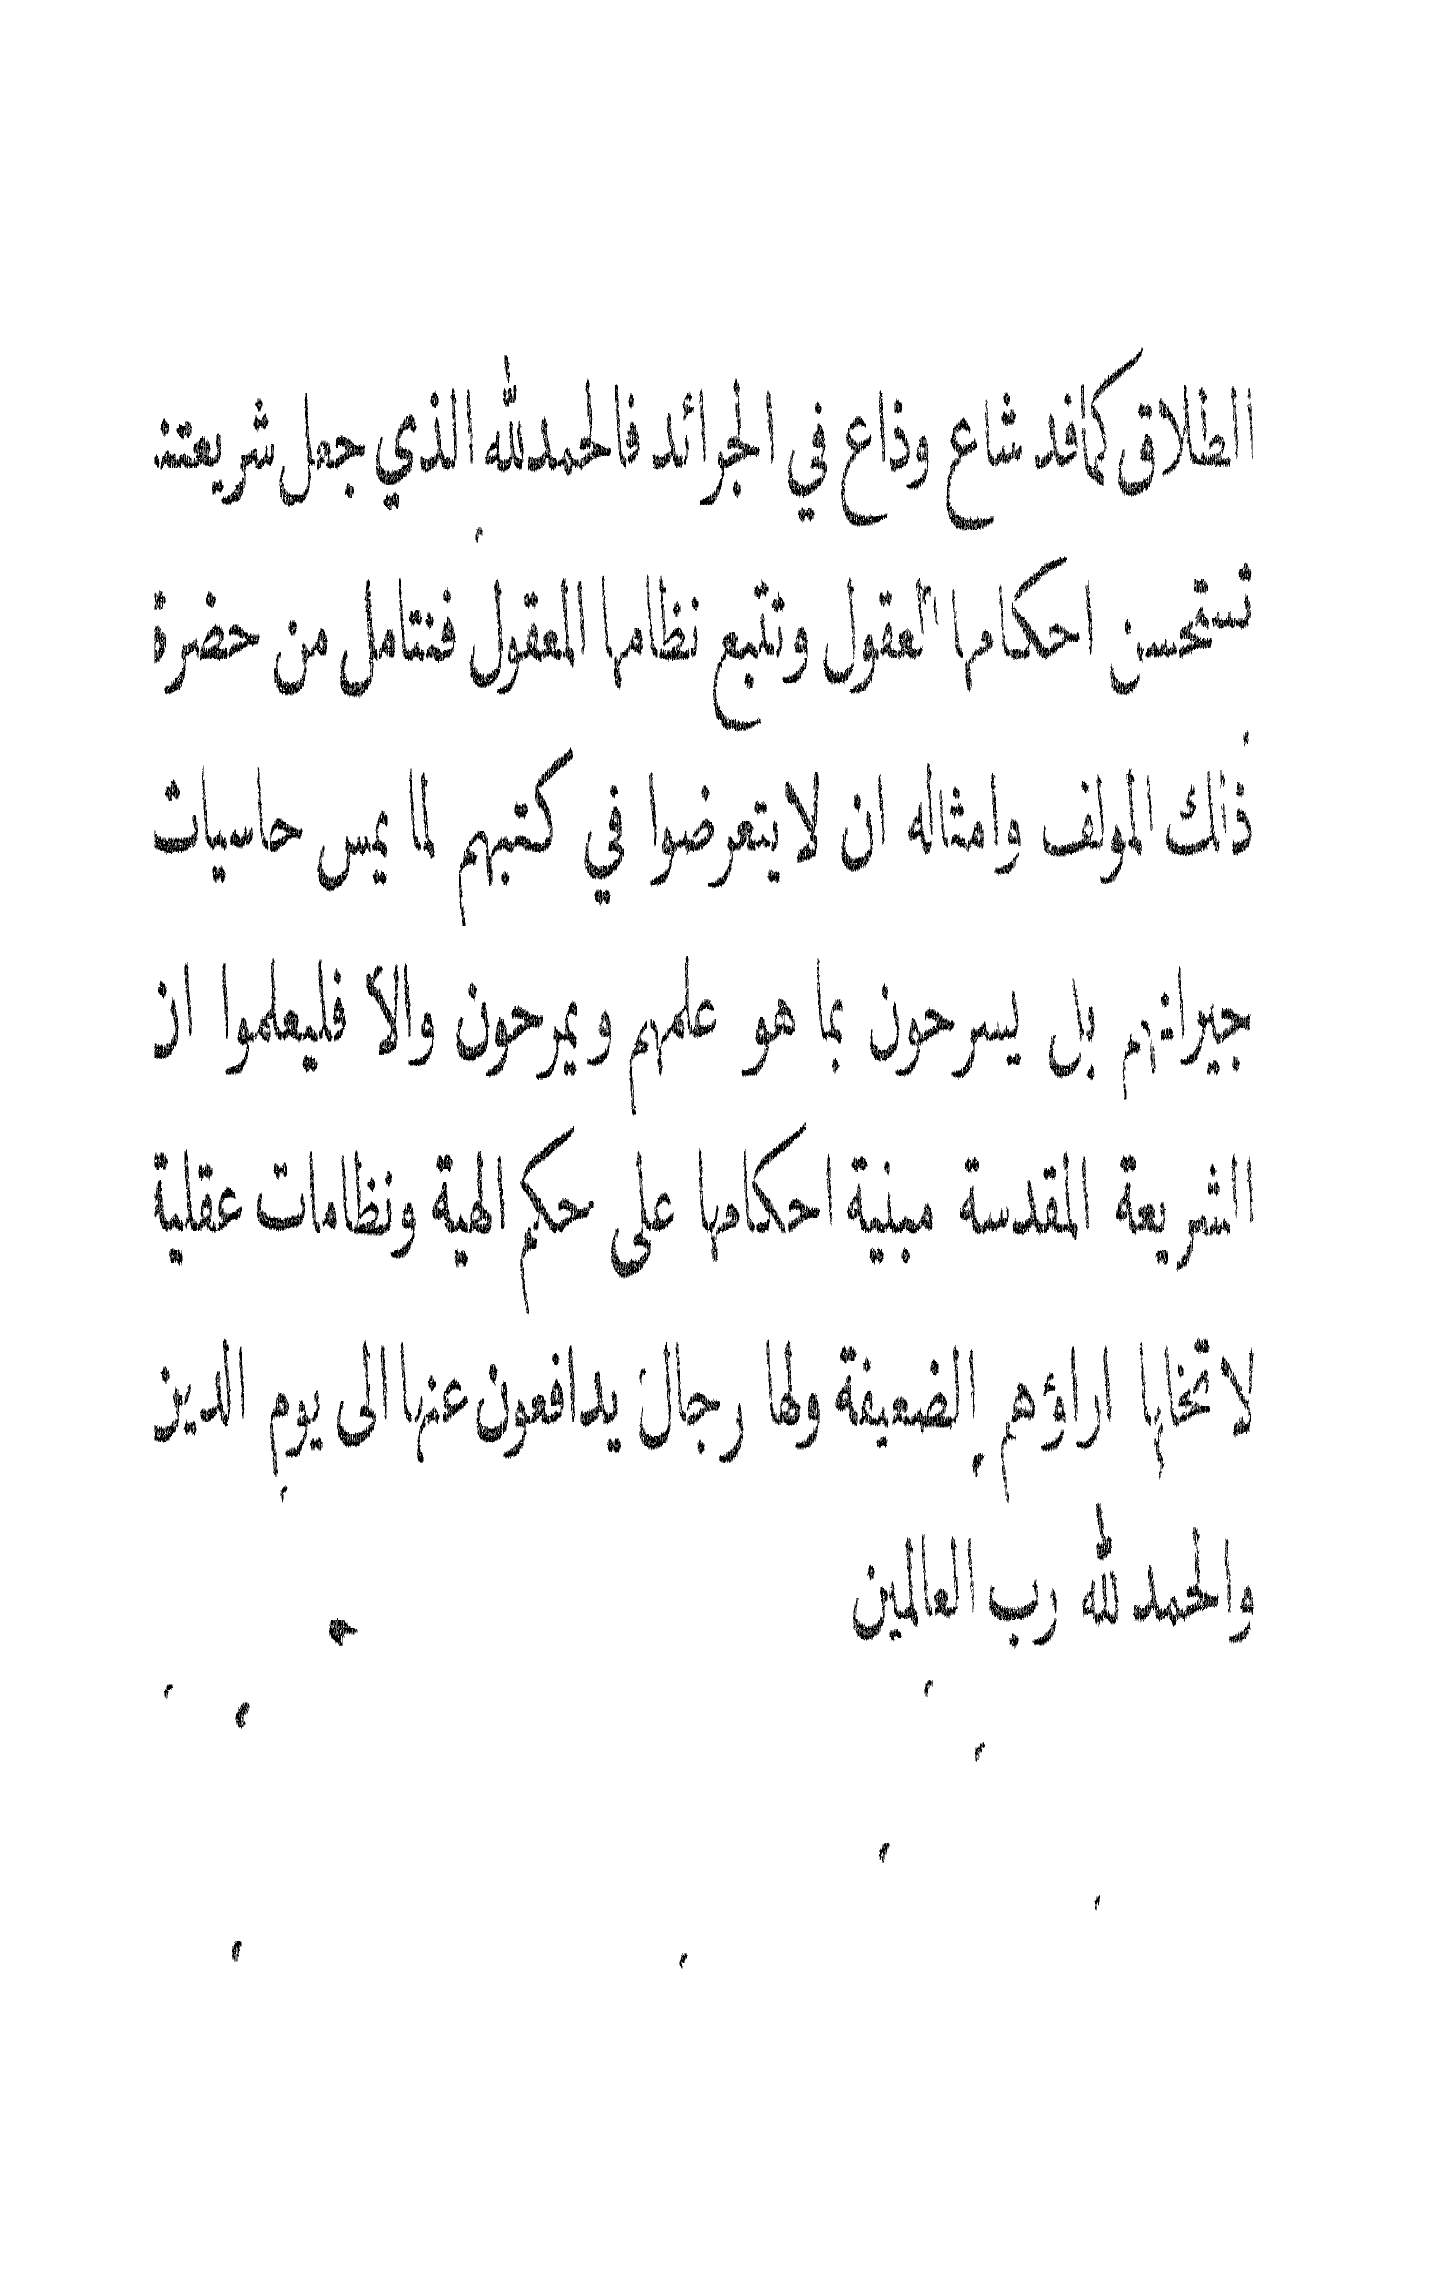 الطلاق كما قد شاع وذاع في الجرائد فالحمد لله الذي جعل شريعتنا
تستحسن احكامها العقول وتتبع نظامها المعقول فنتامل من حضرة
ذلك المولف وامثاله ان لا يتعرضوا في كتبهم لما يمس حاسيات
جيرانهم بل يسرحون بما هو علمهم ويمرحون والا فليعلموا ان
الشريعة المقدسة مبنية احكامها على حكم الهية ونظامات عقلية
لا تخالها اراؤهم الضعيفة ولها رجال يدافعون عنها الى يوم الدين
والحمد لله رب العالمين